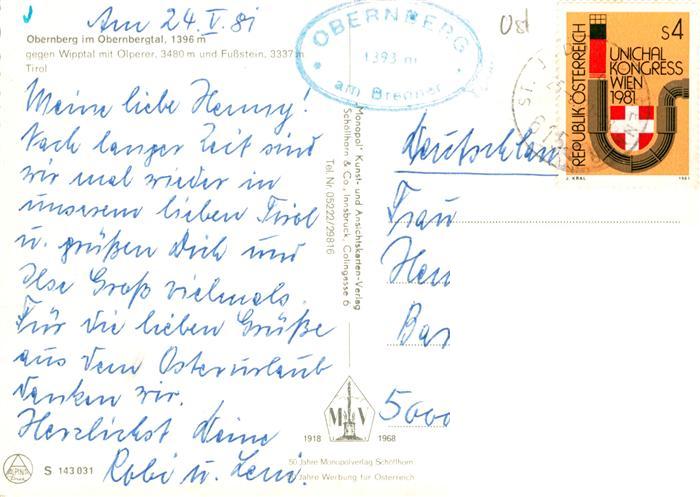 Am 24. V. 81
Obernberg im Obernbergtal, 1396 m
gegen Wipptal mit Olperer, 3480 m und Fußstein, 3337 m
Tirol
Meine liebe Henny!
Nach langer Zeit sind
wir mal wieder in
unserem lieben Tirol
u. grüßen Dich und
Ilse Groß vielmals.
Für die lieben Grüße
aus dem Osterurlaub
danken wir.
Herzlichst Deine
Robi u. Leni.
S 143 031
OBERNBERG
1393 m
am Brenner
"Monopol" Kunst- und Ansichtskarten-Verlag
Schöllhorn & Co., Innsbruck, Colingasse 6
Tel. Nr. 05222/29816
1918 MV 1968
50 Jahre Monopolverlag Schöllhorn
Jahre Werbung für Österreich
S4
UNICHAL
KONGRESS
WIEN
1981
REPUBLIK ÖSTERREICH
J. KRAL 1981
Deutschland
Frau
Hen
Bar
5000